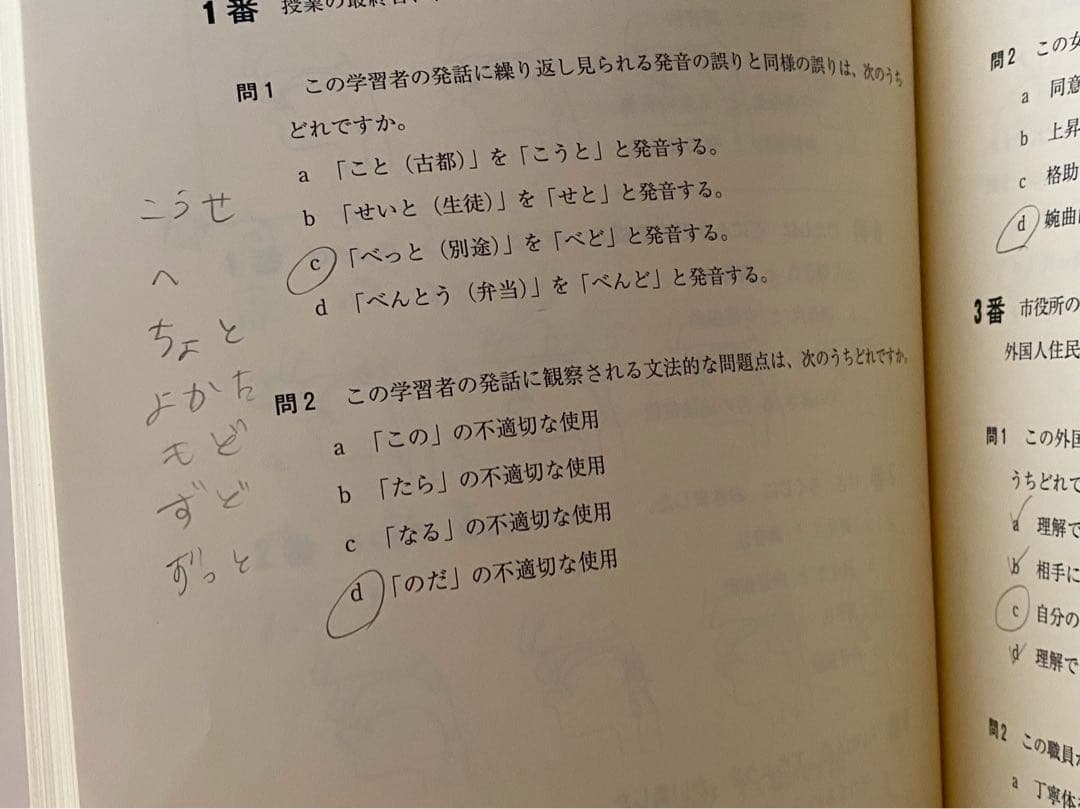 1番 授業の最終日に、
問1 この学習者の発話に繰り返し見られる発音の誤りと同様の誤りは、次のうち
どれですか。
a 「こと（古都）」を「こうと」と発音する。
b 「せいと（生徒）」を「せと」と発音する。
c 「べっと（別途）」を「べど」と発音する。
d 「べんとう（弁当）」を「べんど」と発音する。
こうせ
へ
ちょと
よかた
もど
ずど
ずっと
問2 この学習者の発話に観察される文法的な問題点は、次のうちどれですか。
a 「この」の不適切な使用
b 「たら」の不適切な使用
c 「なる」の不適切な使用
d 「のだ」の不適切な使用
問2 この女
a 同意
b 上昇
c 格助
d 婉曲
3番 市役所の
外国人住民
問1 この外国
うちどれで
a 理解で
b 相手に
c 自分の
d 理解で
問2 この職員
a 丁寧体